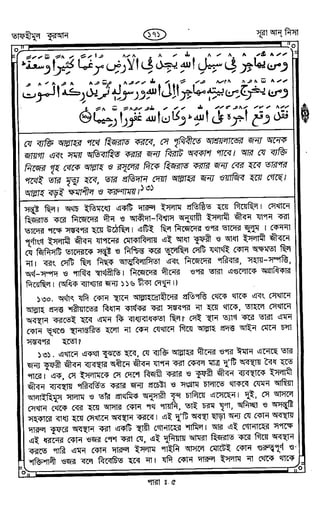 তাফহীমুল কুরআন
১৭১
সূরা আন্ নিসা
وَمَنْ يُّهَاجِرْ فِيْ سَبِيْلِ اللهِ يَجِدْ فِي الْاَرْضِ مُرٰغَمًا كَثِيْرًا وَّسَعَةً ۚ
وَمَنْ يَّخْرُجْ مِنْۢ بَيْتِهٖ مُهَاجِرًا اِلَى اللهِ وَرَسُوْلِهٖ ثُمَّ يُدْرِكْهُ الْمَوْتُ
فَقَدْ وَقَعَ اَجْرُهٗ عَلَى اللهِ ۚ وَكَانَ اللهُ غَفُوْرًا رَّحِيْمًا
যে ব্যক্তি আল্লাহর পথে হিজরাত করবে, সে পৃথিবীতে আশ্রয়লাভের জন্য অনেক
জায়গা এবং সময় অতিবাহিত করার জন্য বিরাট অবকাশ পাবে। আর যে ব্যক্তি
নিজের গৃহ থেকে আল্লাহ ও রসূলের দিকে হিজরাত করার জন্য বের হবে তারপর
পথেই তার মৃত্যু হবে, তার প্রতিদান দেয়া আল্লাহর জন্য ওয়াজিব হয়ে গেছে।
আল্লাহ বড়ই ক্ষমাশীল ও করুণাময়।১৩১
সন্তুষ্ট ছিল। অথচ ইতিমধ্যে একটি দারুল ইসলাম প্রতিষ্ঠিত হয়ে গিয়েছিল। সেখানে
হিজরাত করে নিজেদের দীন ও আকীদা-বিশ্বাস অনুযায়ী ইসলামী জীবন যাপন করা
তাদের পক্ষে সম্ভবপর হয়ে উঠেছিল। এটিই ছিল নিজেদের ওপর তাদের জুলুম। কেননা
পূর্ণাংগ ইসলামী জীবন যাপনের মোকাবিলায় এই আধা কুফরী ও আধা ইসলামী জীবনে
যে জিনিসটি তাদেরকে সন্তুষ্ট ও নিশ্চিন্ত করে তুলেছিল সেটি যথার্থই কোন অক্ষমতা ছিল
না। বরং সেটি ছিল নিছক আত্মবিলাসিতা এবং নিজেদের পরিবার, সহায়-সম্পত্তি,
অর্থ-সম্পদ ও পার্থিব স্বার্থপ্রীতি। নিজেদের দীনের ওপর তারা এগুলোকে অগ্রাধিকার
দিয়েছিল। (অধিক ব্যাখ্যার জন্য ১১৬ টীকা দেখুন।)
১৩০. অর্থাৎ যদি কোন স্থানে আল্লাহদ্রোহীদের প্রতিপত্তি থেকে থাকে এবং সেখানে
আল্লাহ প্রদত্ত শরীয়াতের বিধান কার্যকর করা সম্ভবপর না হয়ে থাকে, তাহলে সেখানে
অবস্থান করতেই হবে এমন কি বাধ্যবাধকতা ছিল। সেই স্থান ত্যাগ করে তারা এমন
কোন ভূখণ্ডে স্থানান্তরিত হলো না কেন যেখানে গিয়ে আল্লাহ প্রদত্ত আইন মেনে চলা
সম্ভবপর হতো।
১৩১. এখানে একথা বুঝতে হবে, যে ব্যক্তি আল্লাহর দীনের ওপর ঈমান এনেছে তার
জন্য কুফরী জীবন ব্যবস্থার অধীনে জীবন যাপন করা কেবল মাত্র দু'টি অবস্থায় বৈধ হতে
পারে। এক, সে ইসলামকে সে দেশে বিজয়ী করার ও কুফরী জীবন ব্যবস্থাকে ইসলামী
জীবন ব্যবস্থায় পরিবর্তিত করার জন্য প্রচেষ্টা ও সংগ্রাম চালাতে থাকবে যেমন আম্বিয়া
আলাইহিমুস সালাম ও তাঁর প্রাথমিক অনুসারী বৃন্দ চালিয়ে এসেছেন। দুই, সে আসলে
সেখান থেকে বের হয়ে আসার কোন পথ পায়নি, তাই চরম ঘৃণা, অনিচ্ছা ও অসন্তুষ্টি
সহকারে বাধ্য হয়ে সেখানে অবস্থান করবে। এই দু'টি অবস্থা ছাড়া অন্য যে কোন অবস্থায়
দারুল কুফরে অবস্থান করা একটি স্থায়ী গোনাহের শামিল। আর এই গোনাহের সপক্ষে
এই ধরনের কোন ওজর পেশ করা যে, এই দুনিয়ায় আমরা হিজরাত করে গিয়ে অবস্থান
করতে পারি এমন কোন দারুল ইসলাম পাইনি আসলে মোটেই কোন গুরুত্বপূর্ণ ও
শক্তিশালী ওজর বলে বিবেচিত হবে না। যদি কোন দারুল ইসলাম না থেকে থাকে
পারা ঃ ৫